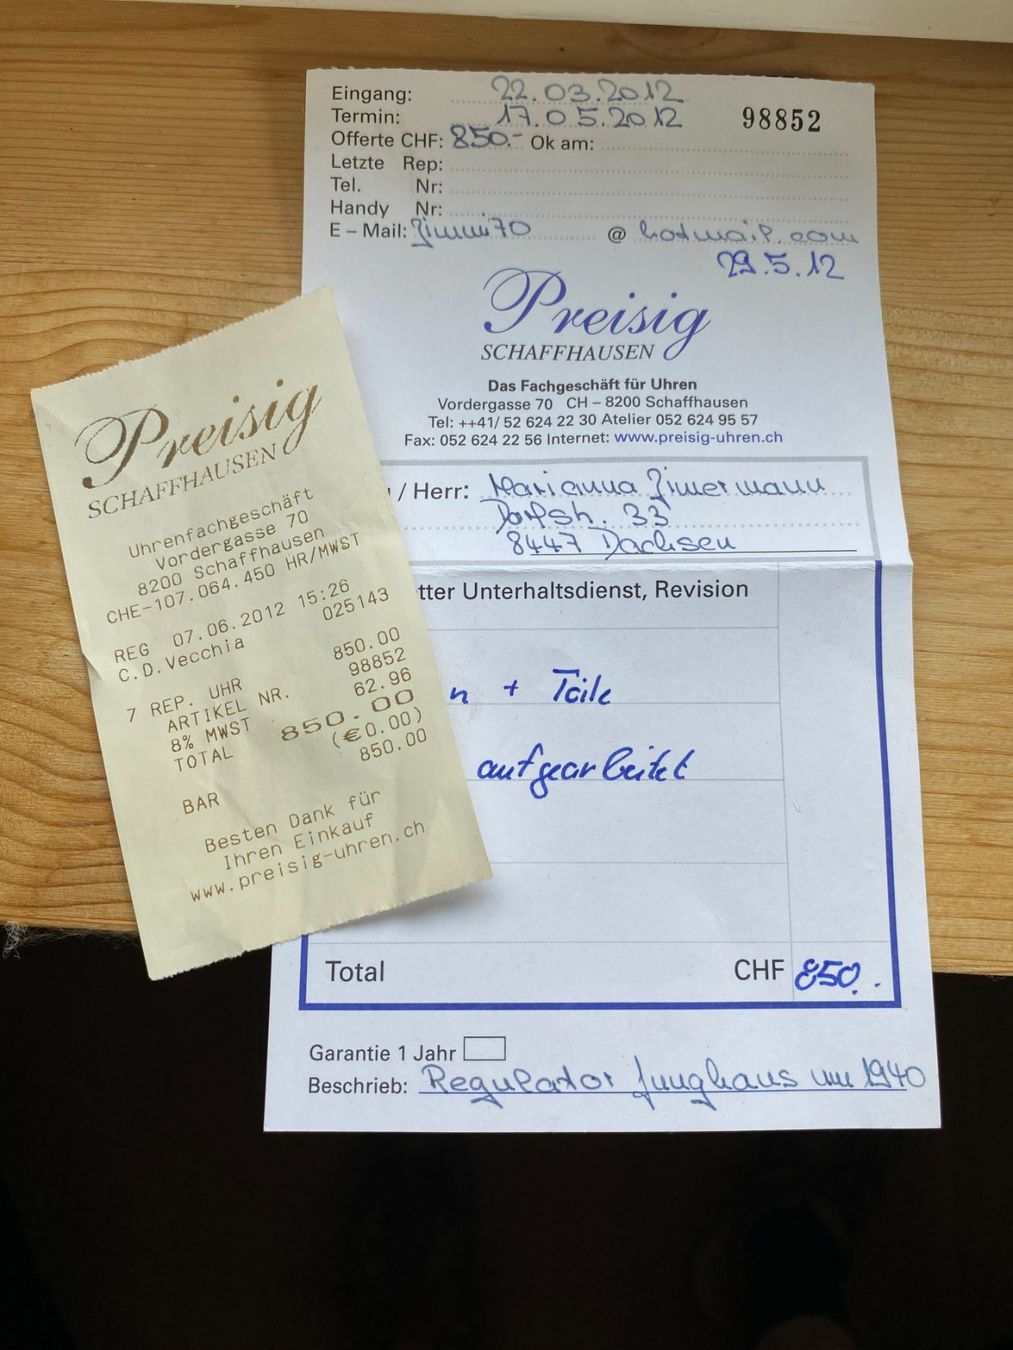 Eingang: 22.03.2012
Termin: 17.05.2012
98852
Offerte CHF: 850.- Ok am:
Letzte Rep:
Tel. Nr:
Handy Nr:
E – Mail: Zimmi70 @ hotmail.com
29.5.12
Preisig
SCHAFFHAUSEN
Das Fachgeschäft für Uhren
Vordergasse 70 CH – 8200 Schaffhausen
Tel: ++41/ 52 624 22 30 Atelier 052 624 95 57
Fax: 052 624 22 56 Internet: www.preisig-uhren.ch
/ Herr: Marianna Zimermann
Dorfstr. 33
8447 Dachsen
tter Unterhaltsdienst, Revision
n + Teile
aufgearbeitet
Total CHF 850.-
Garantie 1 Jahr
Beschrieb: Regulator Junghaus um 1940
Preisig
SCHAFFHAUSEN
Uhrenfachgeschäft
Vordergasse 70
8200 Schaffhausen
CHE-107.064.450 HR/MWST
REG 07.06.2012 15:26
C.D.Vecchia 025143
7 REP. UHR 850.00
ARTIKEL NR. 98852
8% MWST 62.96
TOTAL 850.00
(€0.00)
BAR 850.00
Besten Dank für
Ihren Einkauf
www.preisig-uhren.ch